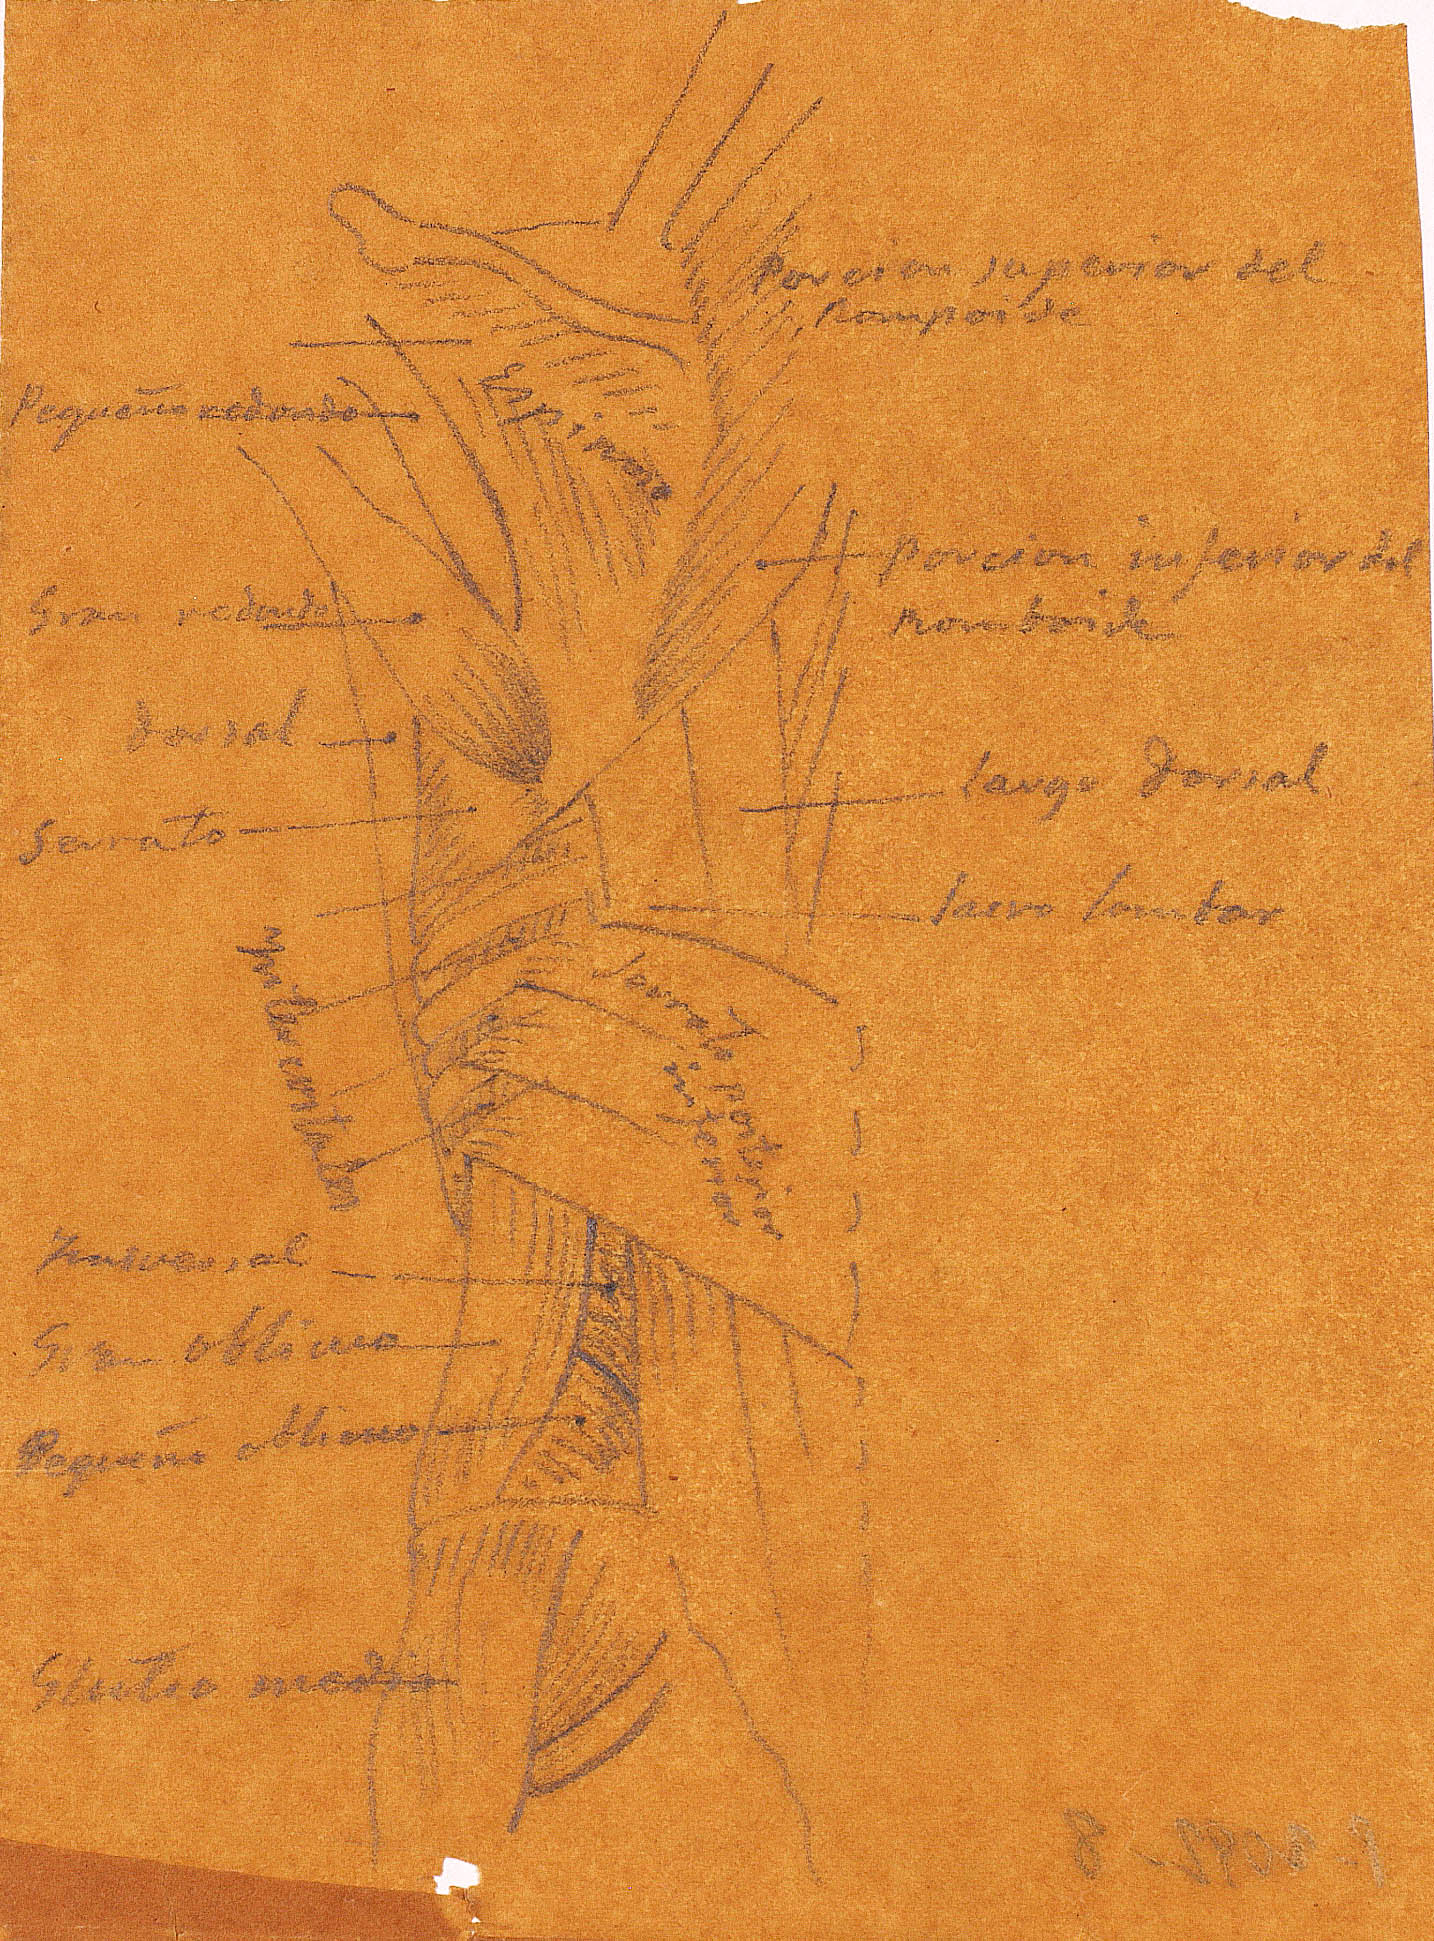 Porcion superior del
Rompoide
Pequeño redondo
Espinoso
Porcion inferior del
Romboide
Gran redondo
dorsal
largo dorsal
Serrato
sacro lombar
Serrato posterior
inferior
Trasversal
Gran oblicuo
Pequeño oblicuo
Gluteo medio